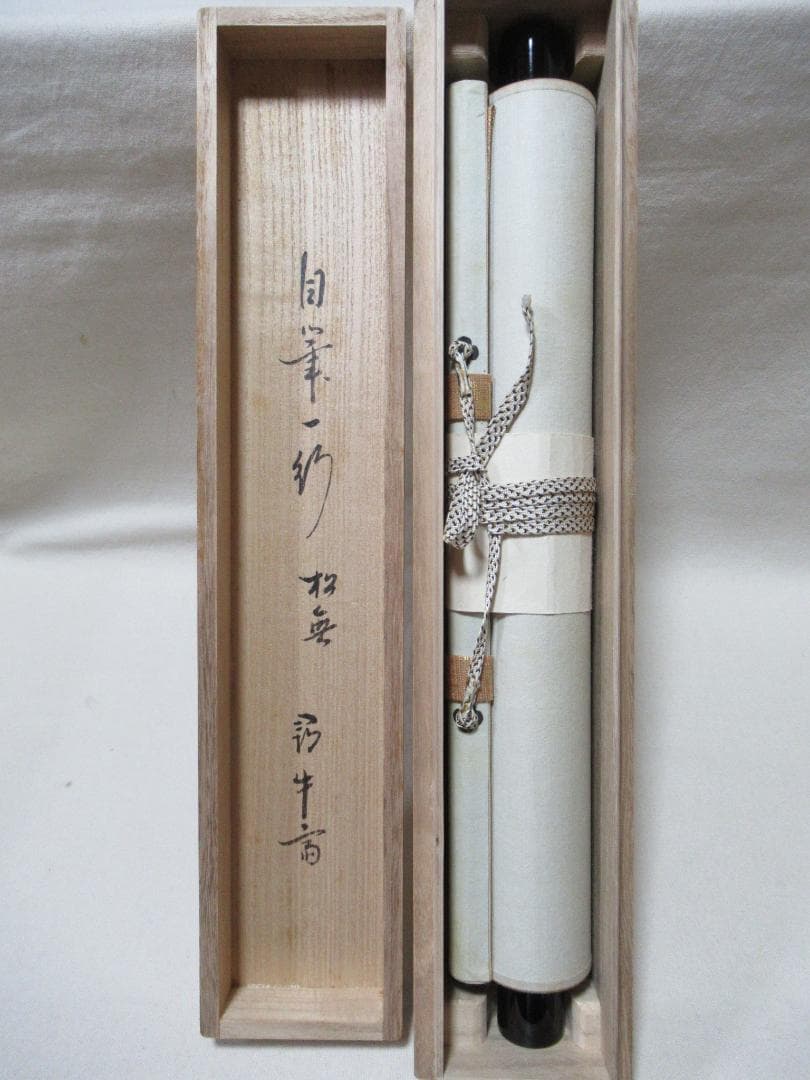 自筆一行 松無 尋牛斎